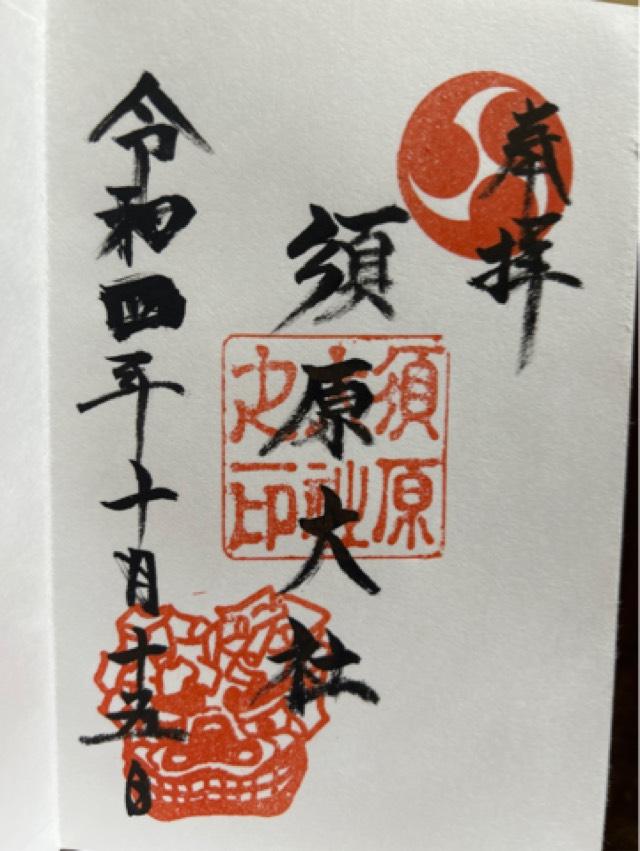 奉拝
須原大社
須原大社之印
令和四年十月十五日